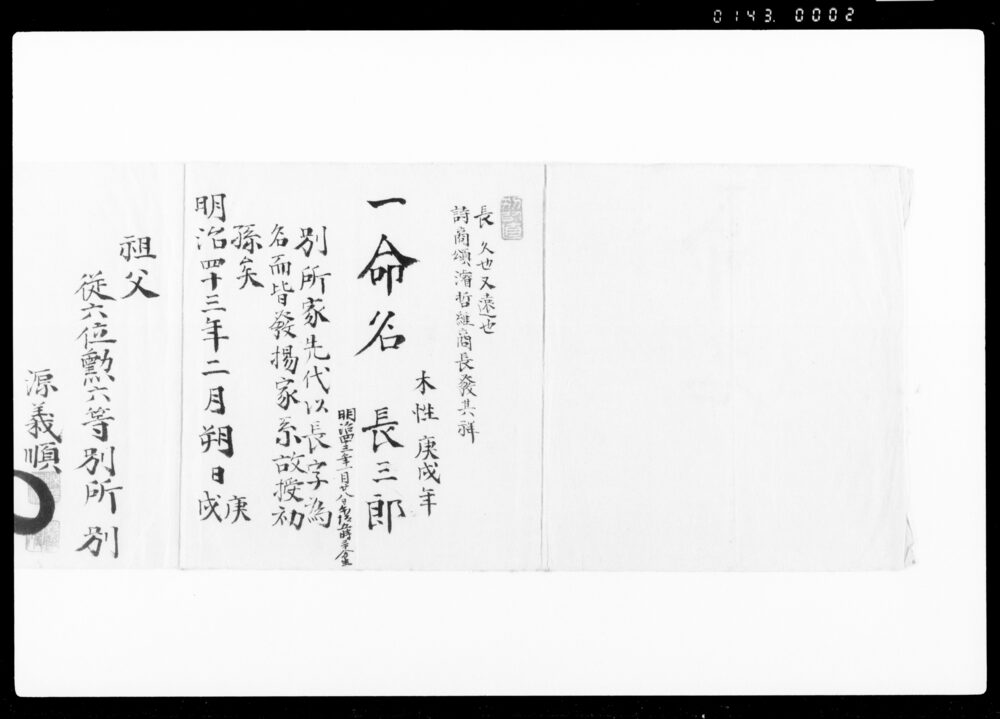 0143. 0002
長 久也又遠也
詩商頌濬哲維商長發其祥
木性 庚戌年
一命名 長三郎
別所家先代以長字為
名而皆發揚家系故授初
孫矣
明治四十三年二月朔日 庚戌
祖父
従六位勲六等別所 別
源義順